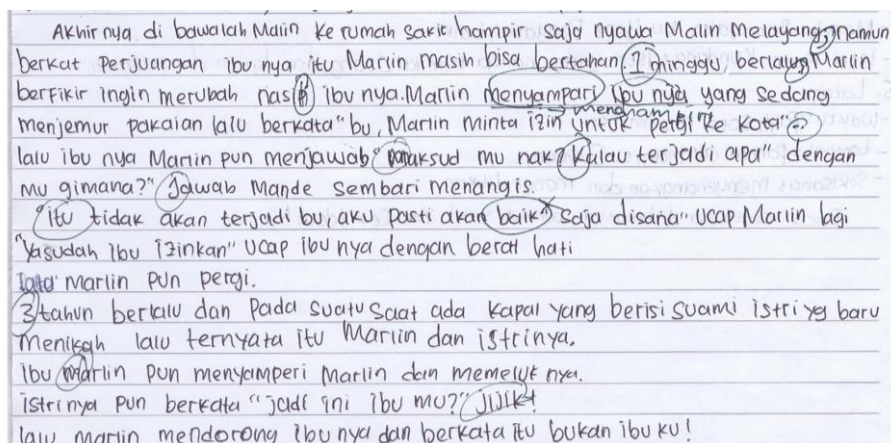 Akhirnya di bawalah Malin ke rumah sakit hampir saja nyawa Malin melayang, namun
berkat Perjuangan ibu nya itu Marlin masih bisa bertahan. 1 minggu berlalu, Marlin
berfikir ingin merubah nasib ibu nya. Marlin menyampari ibu nya yang sedang
menghampiri
menjemur pakaian lalu berkata "bu, Marlin minta izin untuk pergi ke kota".
lalu ibu nya Marlin pun menjawab "maksud mu nak? Kalau terjadi apa" dengan
mu gimana?" Jawab Mande sembari menangis.
"itu tidak akan terjadi bu, aku pasti akan baik" saja disana" ucap Marlin lagi
"Yasudah ibu izinkan" ucap ibu nya dengan berat hati
marlin pun pergi.
3 tahun berlalu dan pada suatu saat ada kapal yang berisi suami istri yg baru
menikah lalu ternyata itu Marlin dan istrinya.
ibu marlin pun menyamperi Marlin dan memeluk nya.
istrinya pun berkata "jadi ini ibu mu?" jijik!
lalu marlin mendorong ibu nya dan berkata itu bukan ibu ku!